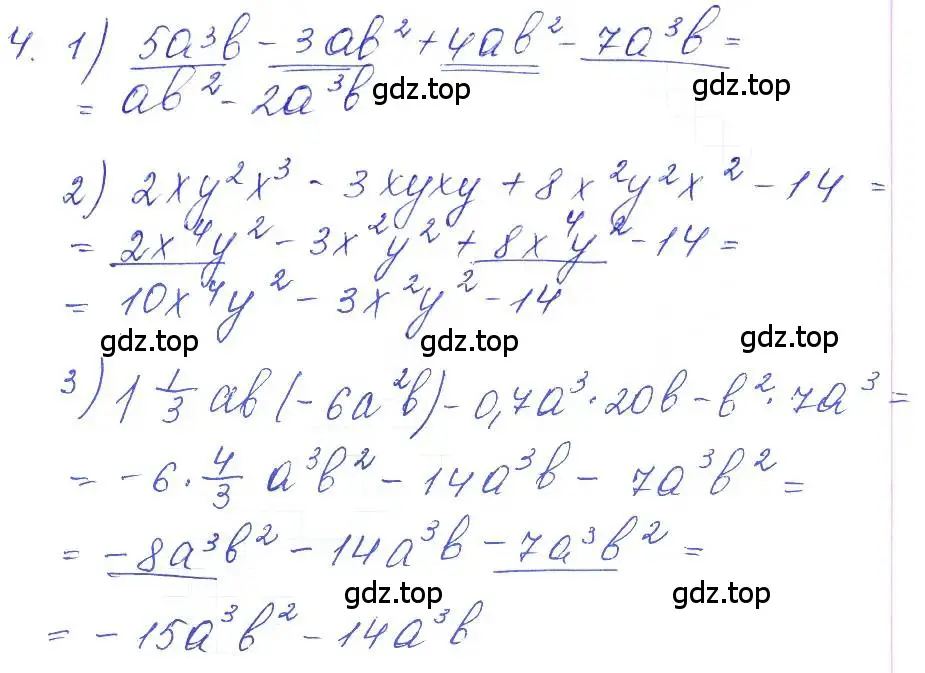 4. 1) 5a³b - 3ab² + 4ab² - 7a³b =
= ab² - 2a³b gdz.top gdz.top
2) 2xy²x³ - 3xyxy + 8x²y²x² - 14 =
= 2x⁴y² - 3x²y² + 8x⁴y² - 14 =
= 10x⁴y² - 3x²y² - 14
gdz.top gdz.top gdz.top
3) 1 1/3 ab (-6a²b) - 0,7a³ · 20b - b² · 7a³ =
= -6 · 4/3 a³b² - 14a³b - 7a³b² =
= -8a³b² - 14a³b - 7a³b² =
gdz.top gdz.top
= -15a³b² - 14a³b